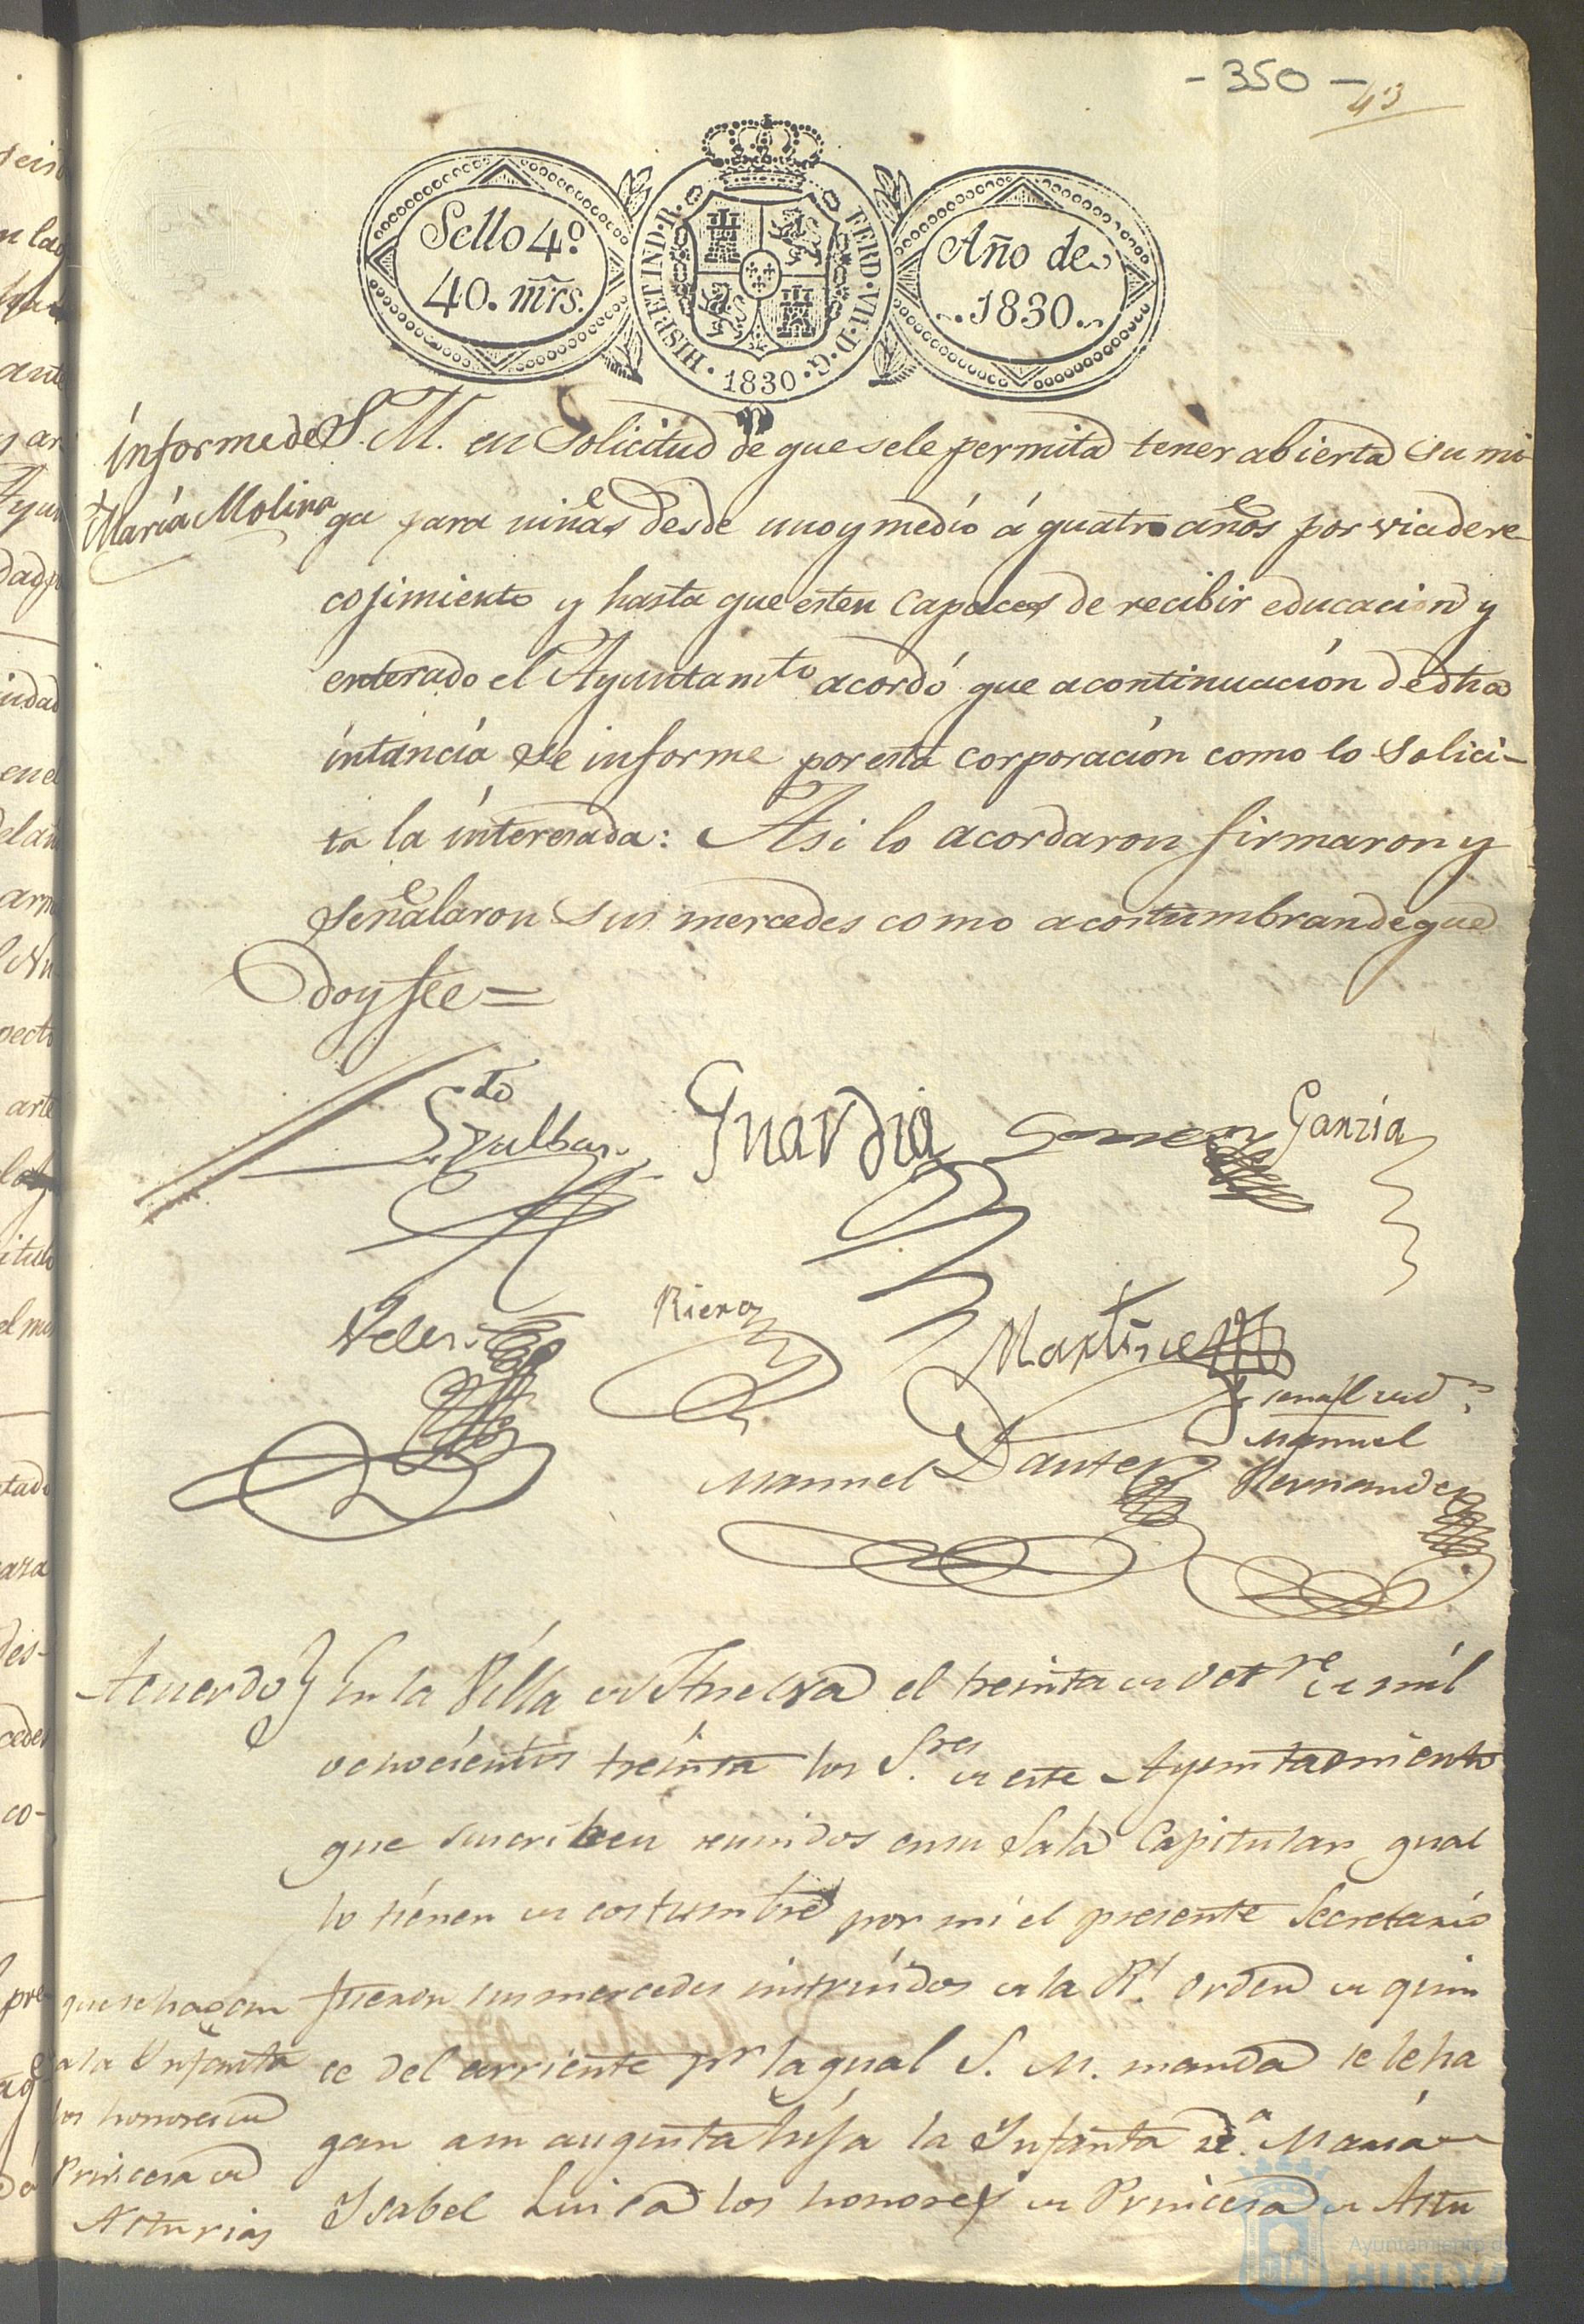 - 350 -
43
Sello 4º
40. mrs.
HISP ET IND. R.
FERD. VII. D. G.
1830
Año de
1830
Informe de
María Molina
S. M. en Solicitud de que sele permita tener abierta su mi-
ga para niñas desde uno y medio á quatro años por via de re-
cojimiento y hasta que esten Capaces de recibir educacion y
enterado el Ayuntamto acordó que acontinuación de dha
intancia se informe por esta corporación como lo Solici-
ta la interesada: Asi lo acordaron firmaron y
señalaron sus mercedes como acostumbran de que
doy fee =
Guardia
Ganzia
Velez
Riera
Martinez
Manuel Dantez
señal de
Manuel
Hernandez
Acuerdo
En la Villa de Huelva el treinta de Octre de mil
ochocientos treinta los Sres de este Ayuntamiento
que suscriben reunidos en su Sala Capitular qual
lo tienen de costumbre por mi el presente Secretario
fueron sus mercedes instruidos de la Rl. Orden de quin
ce del corriente pr la qual S. M. manda se le ha
gan a su augusta hija la Infanta Da. Maria
Isabel Luisa los honores de Princesa de Astu
que se hagan
a la Infanta
los honores de
Princesa de
Asturias
Ayuntamiento de
HUELVA